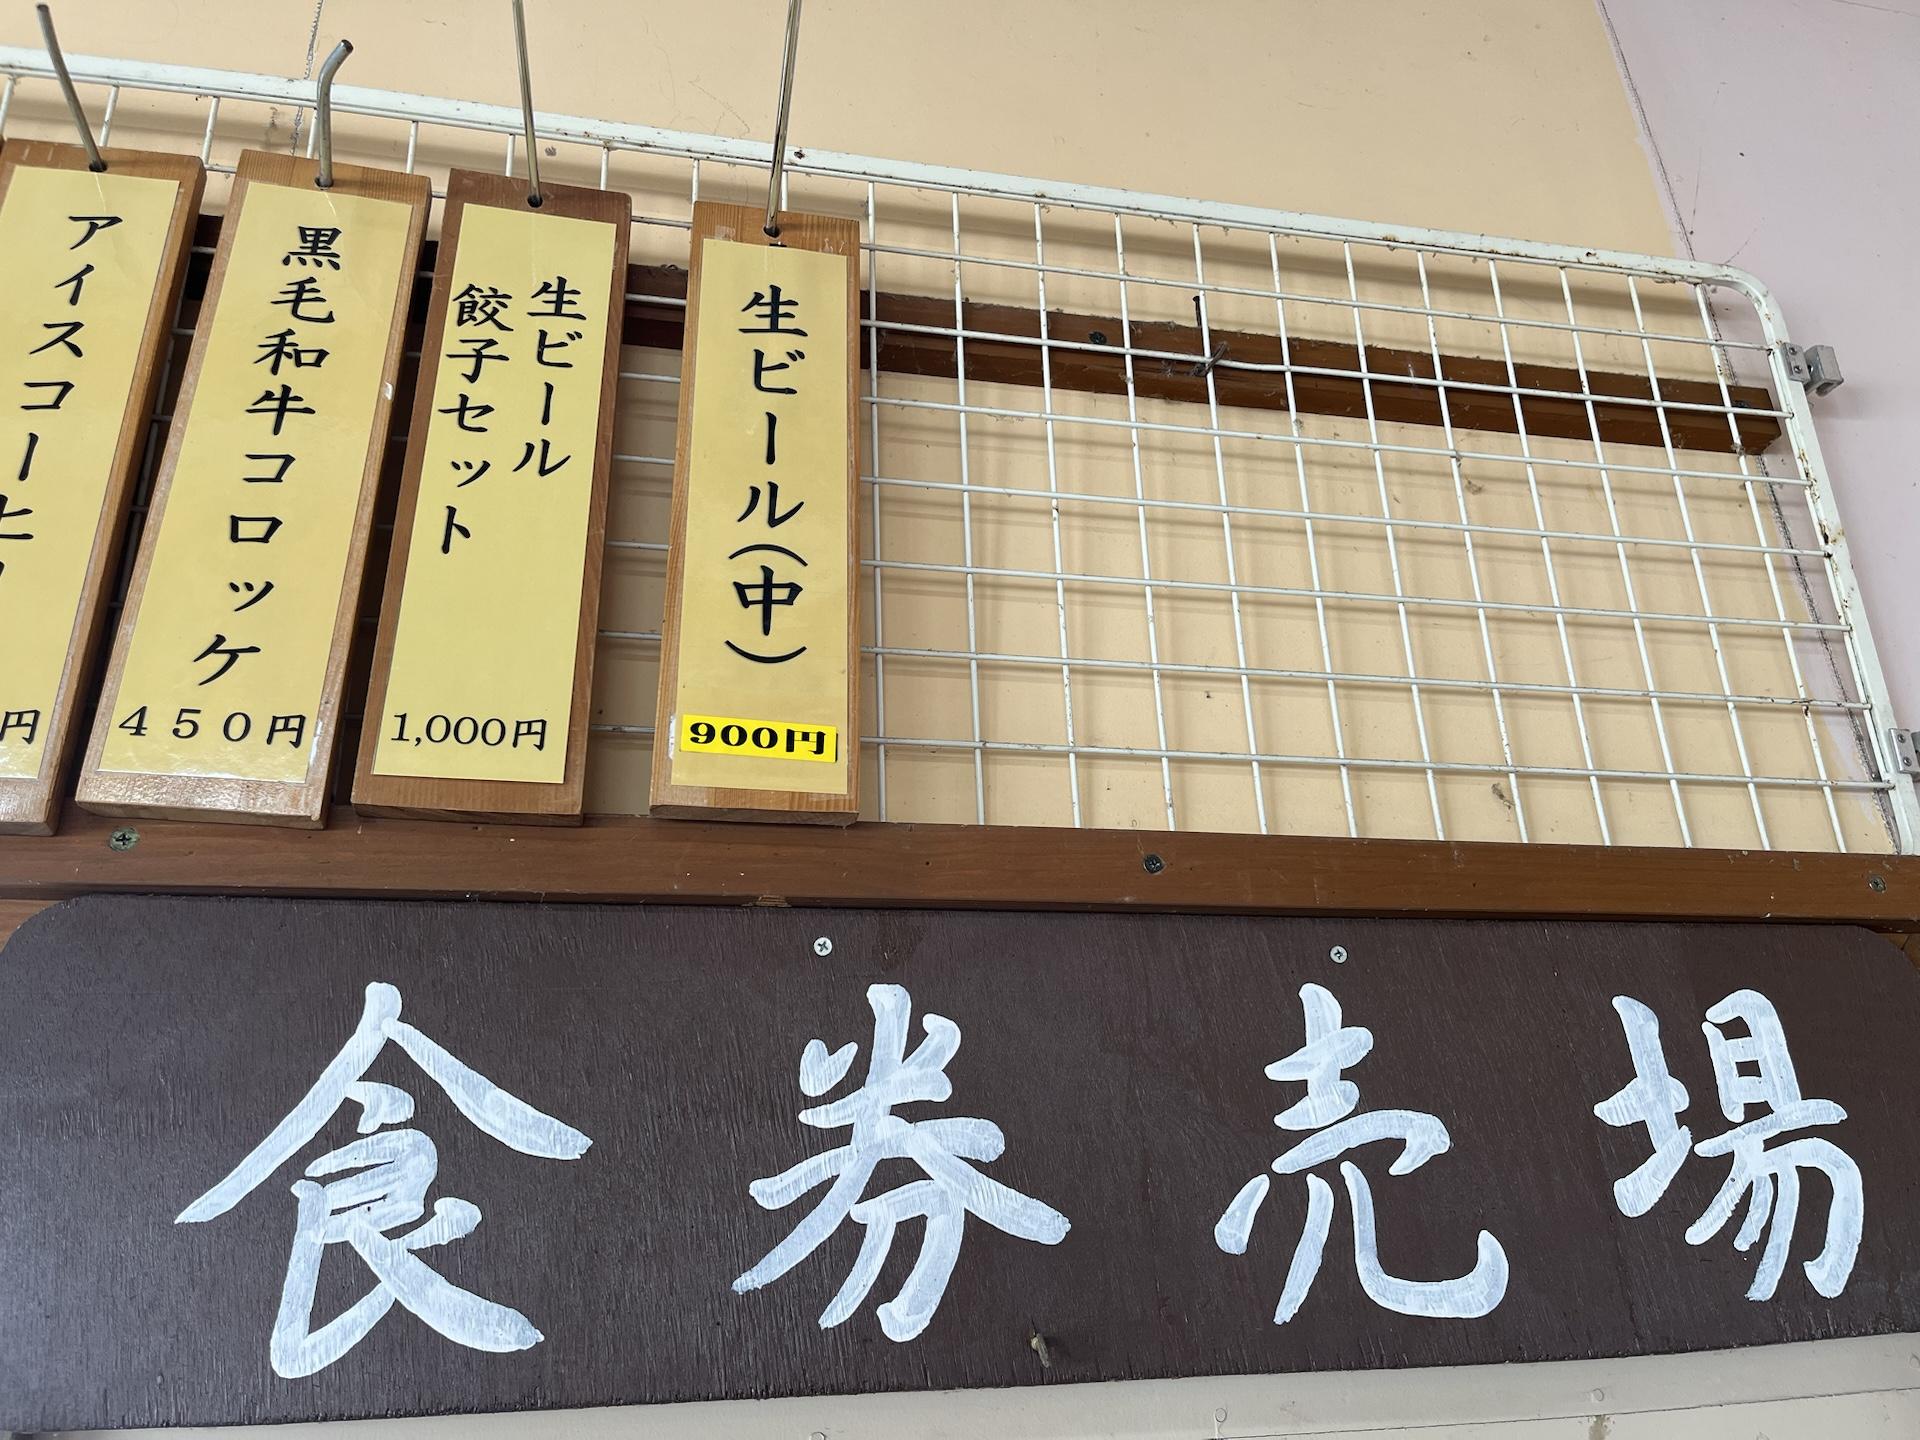 生ビール(中)
900円
生ビール
餃子セット
1,000円
黒毛和牛コロッケ
450円
アイスコーヒー
円
食券売場